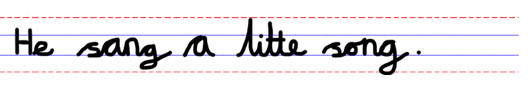 He sang a litte song.